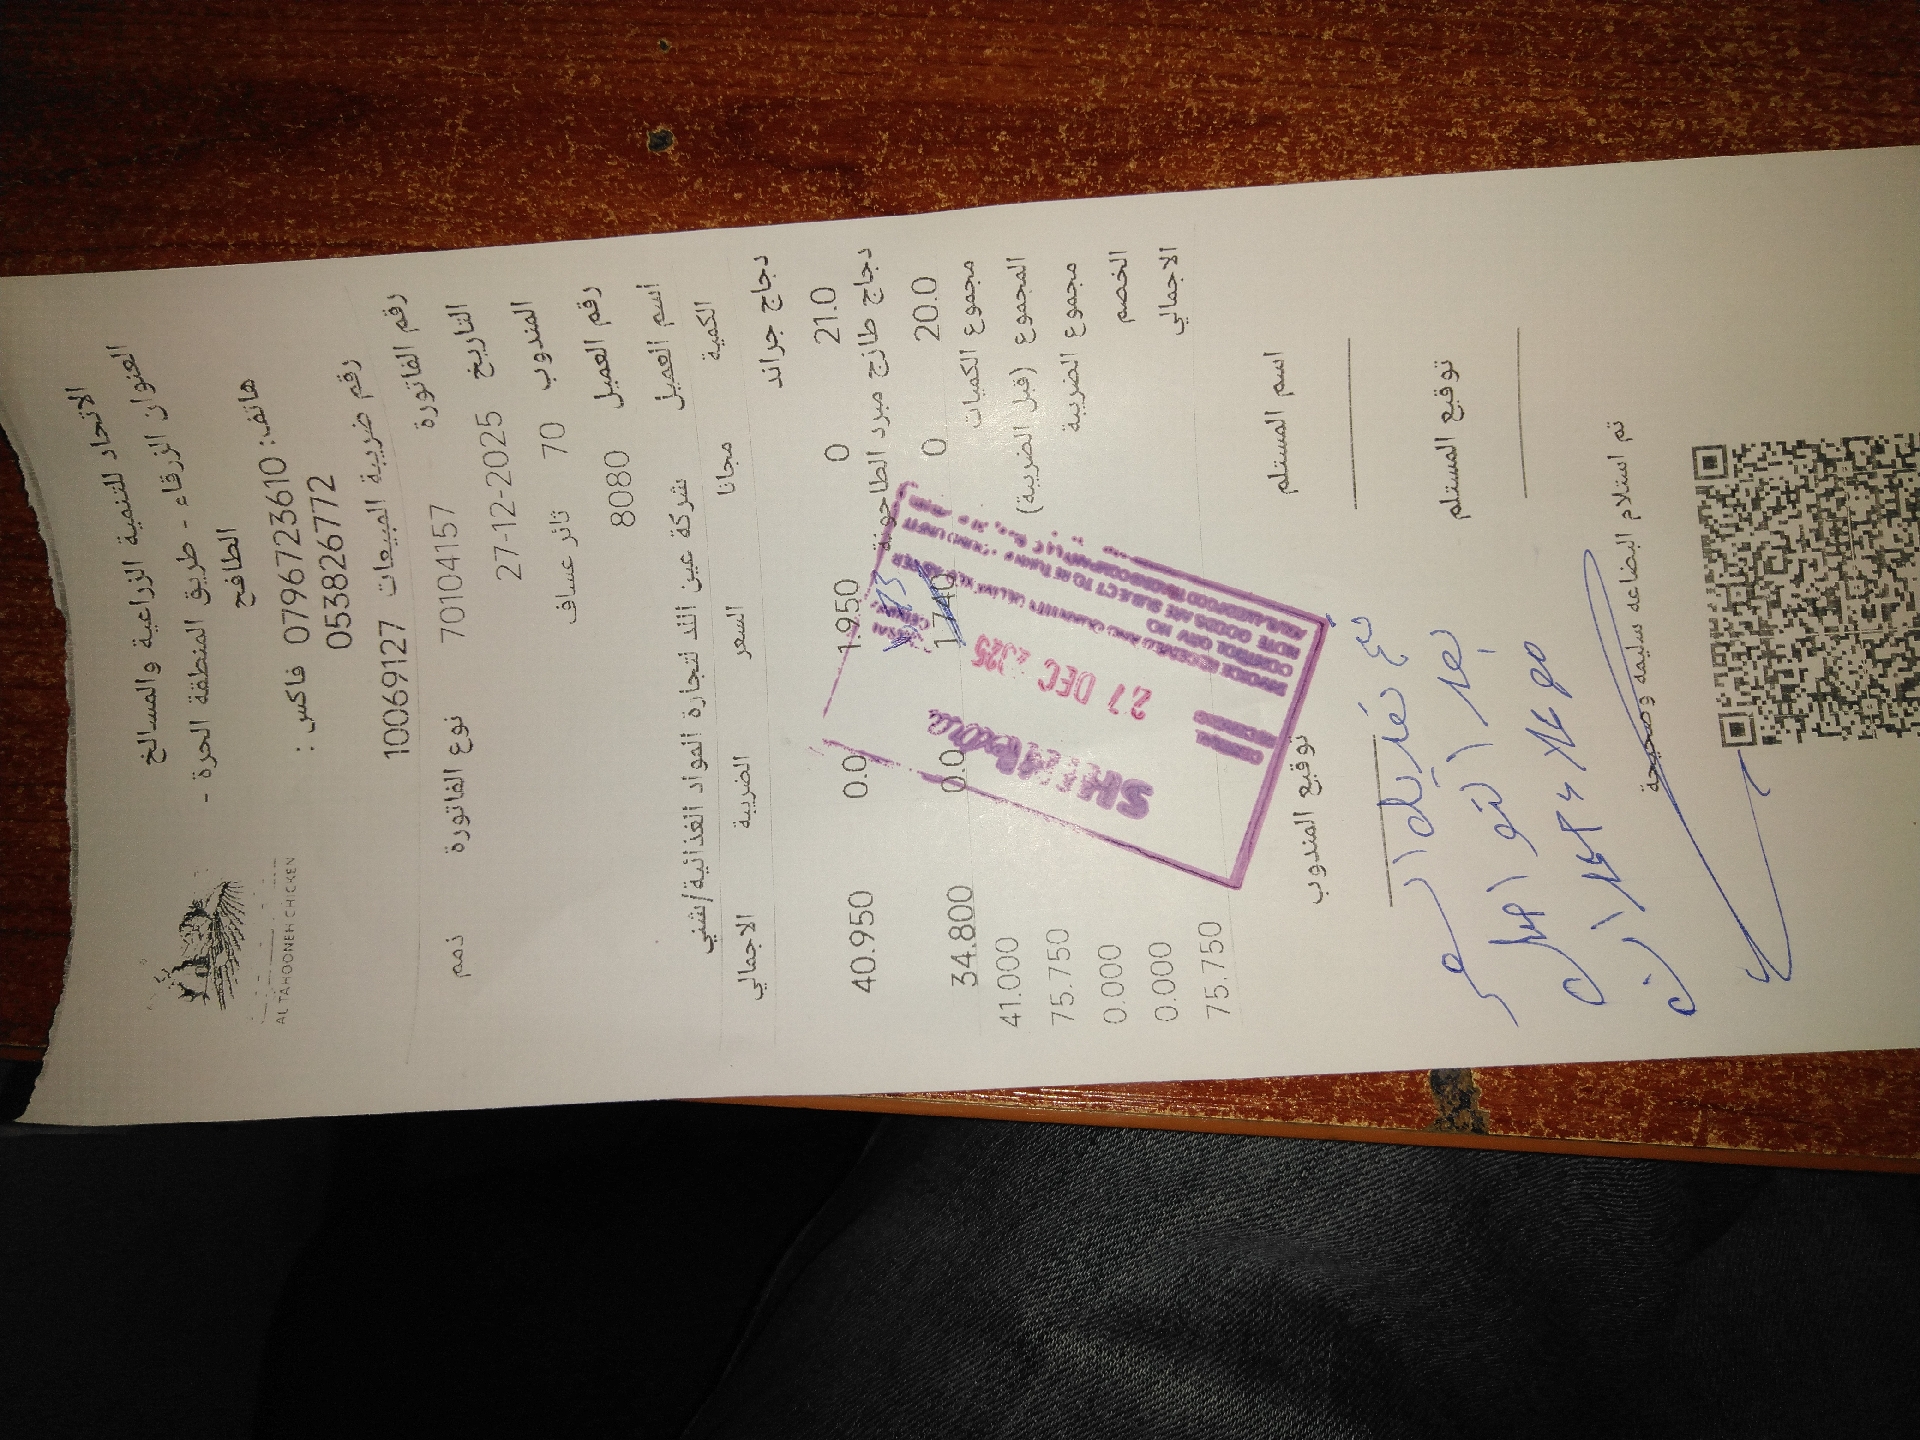 AL TAHOONEH CHICKEN
الاتحاد للتنمية الزراعية والمسالخ
العنوان الزرقاء - طريق المنطقة الحرة -
الطافح
هاتف: 0796723610 فاكس :
0538826772
رقم ضريبة المبيعات 10069127
رقم الفاتورة 70104157 نوع الفاتورة ذمم
التاريخ 27-12-2025
المندوب 70 ثائر عساف
رقم العميل 8080
اسم العميل شركة عين اللد لتجارة المواد الغذائية/شني
الكمية مجانا السعر الضريبة الاجمالي
دجاج جراند
21.0 0 1.950 0.0 40.950
دجاج طازج مبرد الطاحونة
20.0 0 1.740 0.0 34.800
مجموع الكميات 41.000
المجموع (قبل الضريبة) 75.750
مجموع الضريبة 0.000
الخصم 0.000
الاجمالي 75.750
27 DEC 2025
CONTROL GRV NO
NOTE GOODS ARE SUBJECT TO RETURN
اسم المستلم توقيع المندوب
توقيع المستلم
تع تعديل السعر
بعد التواصل
تم استلام البضاعه سليمه وصحيحة